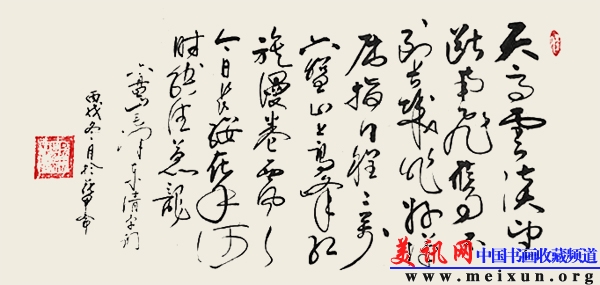 天高雲淡望
断南飛雁不
到长城非好汉
屈指行程二万
六盤山上高峰红
旗漫卷西风
今日长缨在手何
时缚住苍龙
六盘山毛泽东清平乐词
丙戌冬月於
美讯网 中国书画收藏频道
www.meixun.org